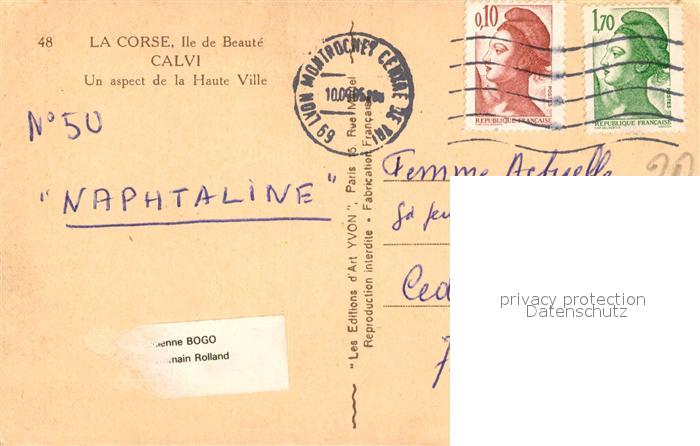 48 LA CORSE, Ile de Beauté
CALVI
Un aspect de la Haute Ville
N° 50
"NAPHTALINE"
BOGO
Rolland
"Les Editions d'Art YVON", Paris
Reproduction interdite • Fabrication Française
69 LYON MONTROCHET CENTRE DE TRI
0,10
POSTES
REPUBLIQUE FRANÇAISE
1,70
POSTES
REPUBLIQUE FRANÇAISE
20
Femme Actuelle
Ced
privacy protection
Datenschutz